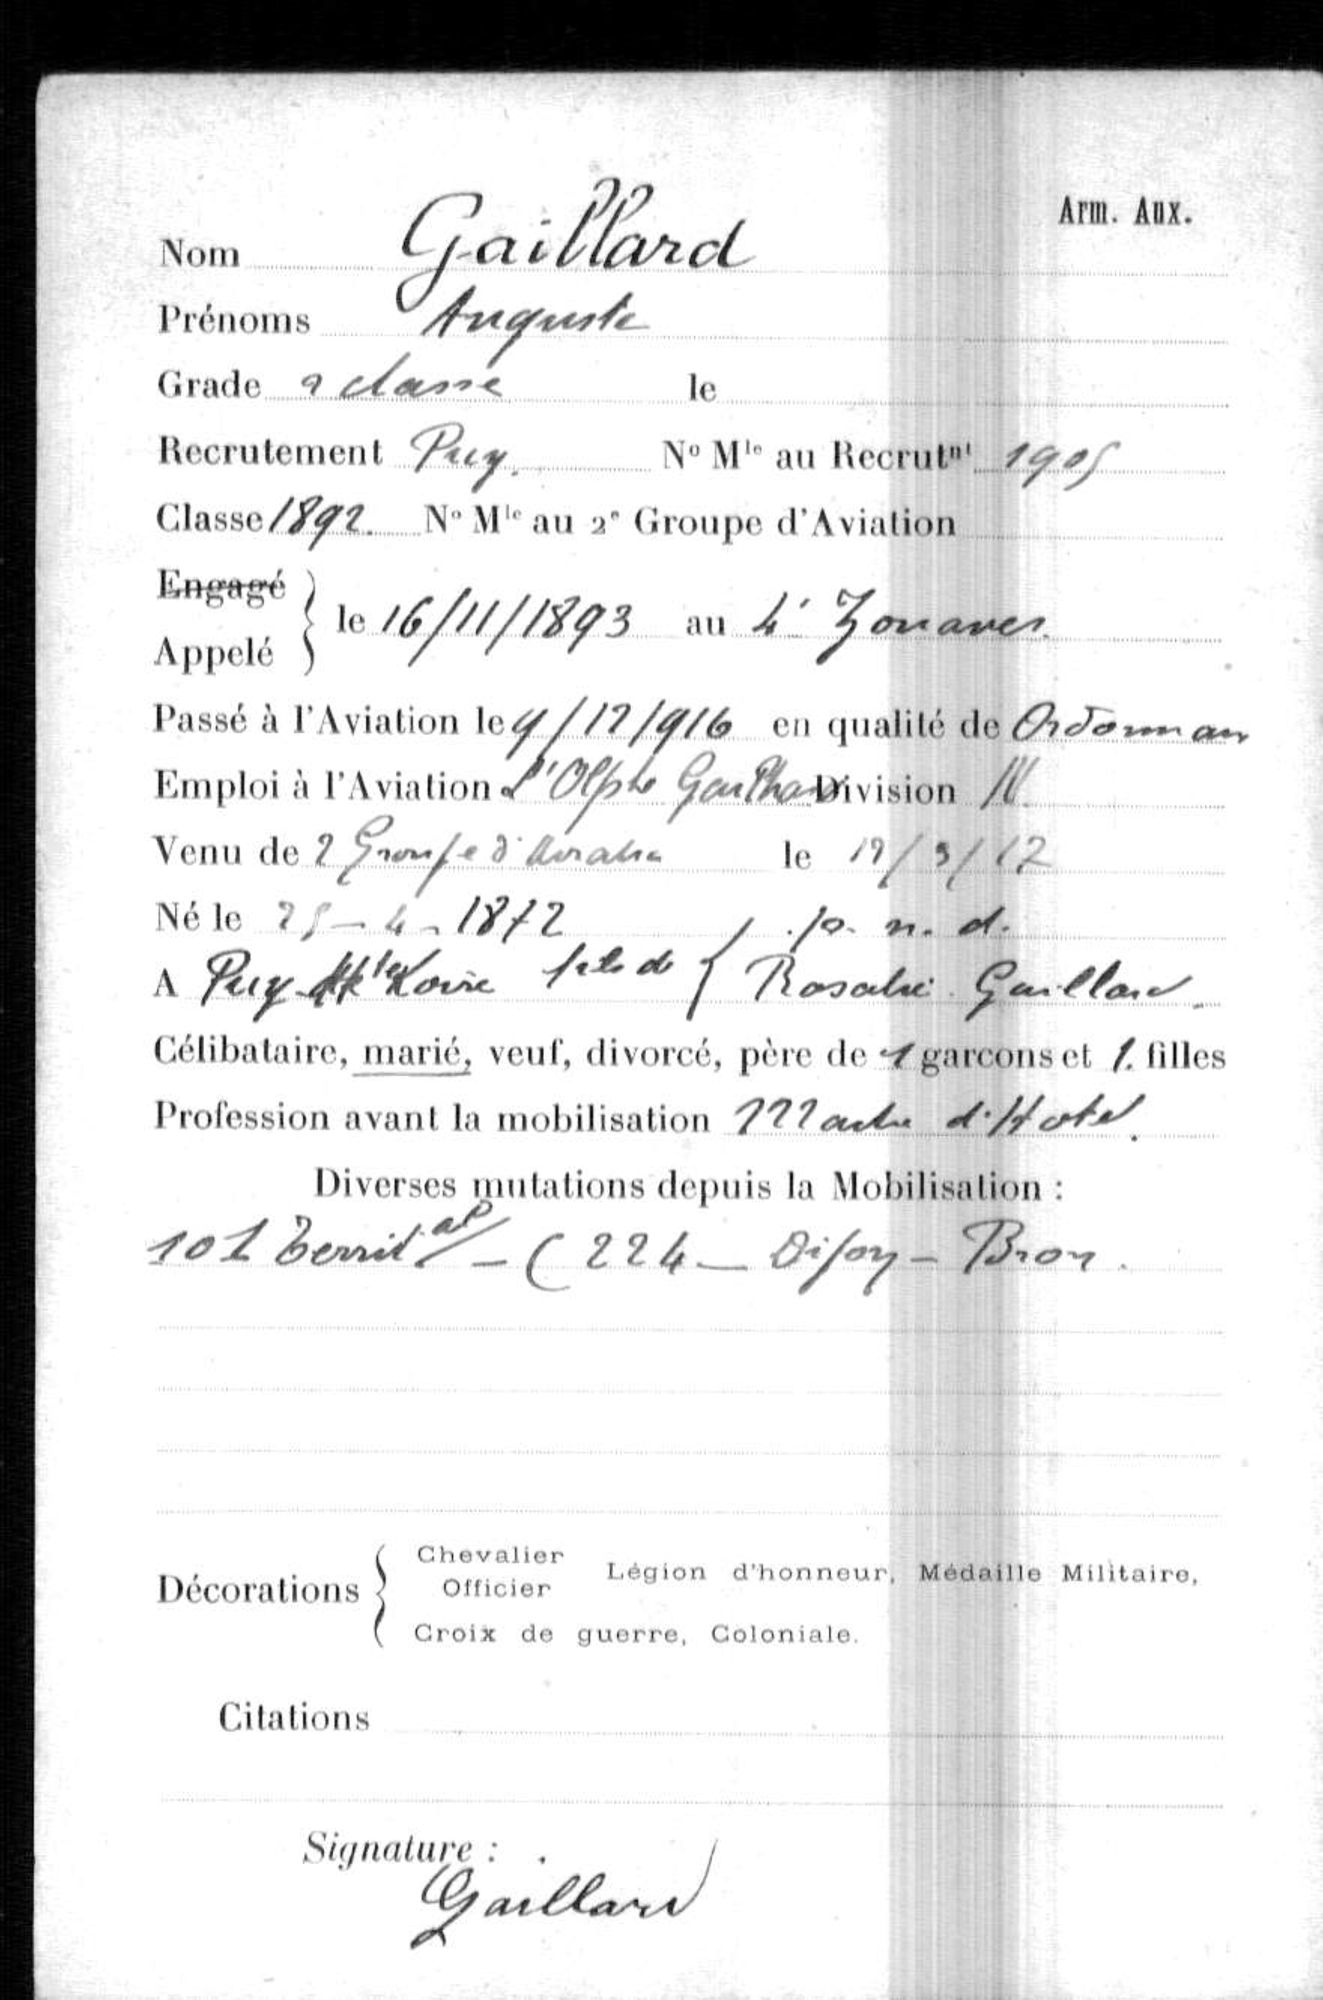 Arm. Aux.
Nom Gaillard
Prénoms Auguste
Grade 2 classe le
Recrutement Puy. Nº Mle au Recrutnt 1905
Classe 1892. Nº Mle au 2e Groupe d'Aviation
Engagé
Appelé } le 16/11/1893 au 4e Zouaves.
Passé à l'Aviation le 9/12/916 en qualité de
Emploi à l'Aviation Division IV.
Venu de 2 Groupe d'Aviation le 12/3/17
Né le 25-4-1872 p. n. d.
A Puy Hte Loire fils de { Rosalie Gaillard
Célibataire, marié, veuf, divorcé, père de 1 garçons et 1. filles
Profession avant la mobilisation Maitre d'Hotel.
Diverses mutations depuis la Mobilisation :
101 Territal - ( 224 - Dijon - Bron.
Décorations { Chevalier
Officier Légion d'honneur, Médaille Militaire,
Croix de guerre, Coloniale.
Citations
Signature :
Gaillard